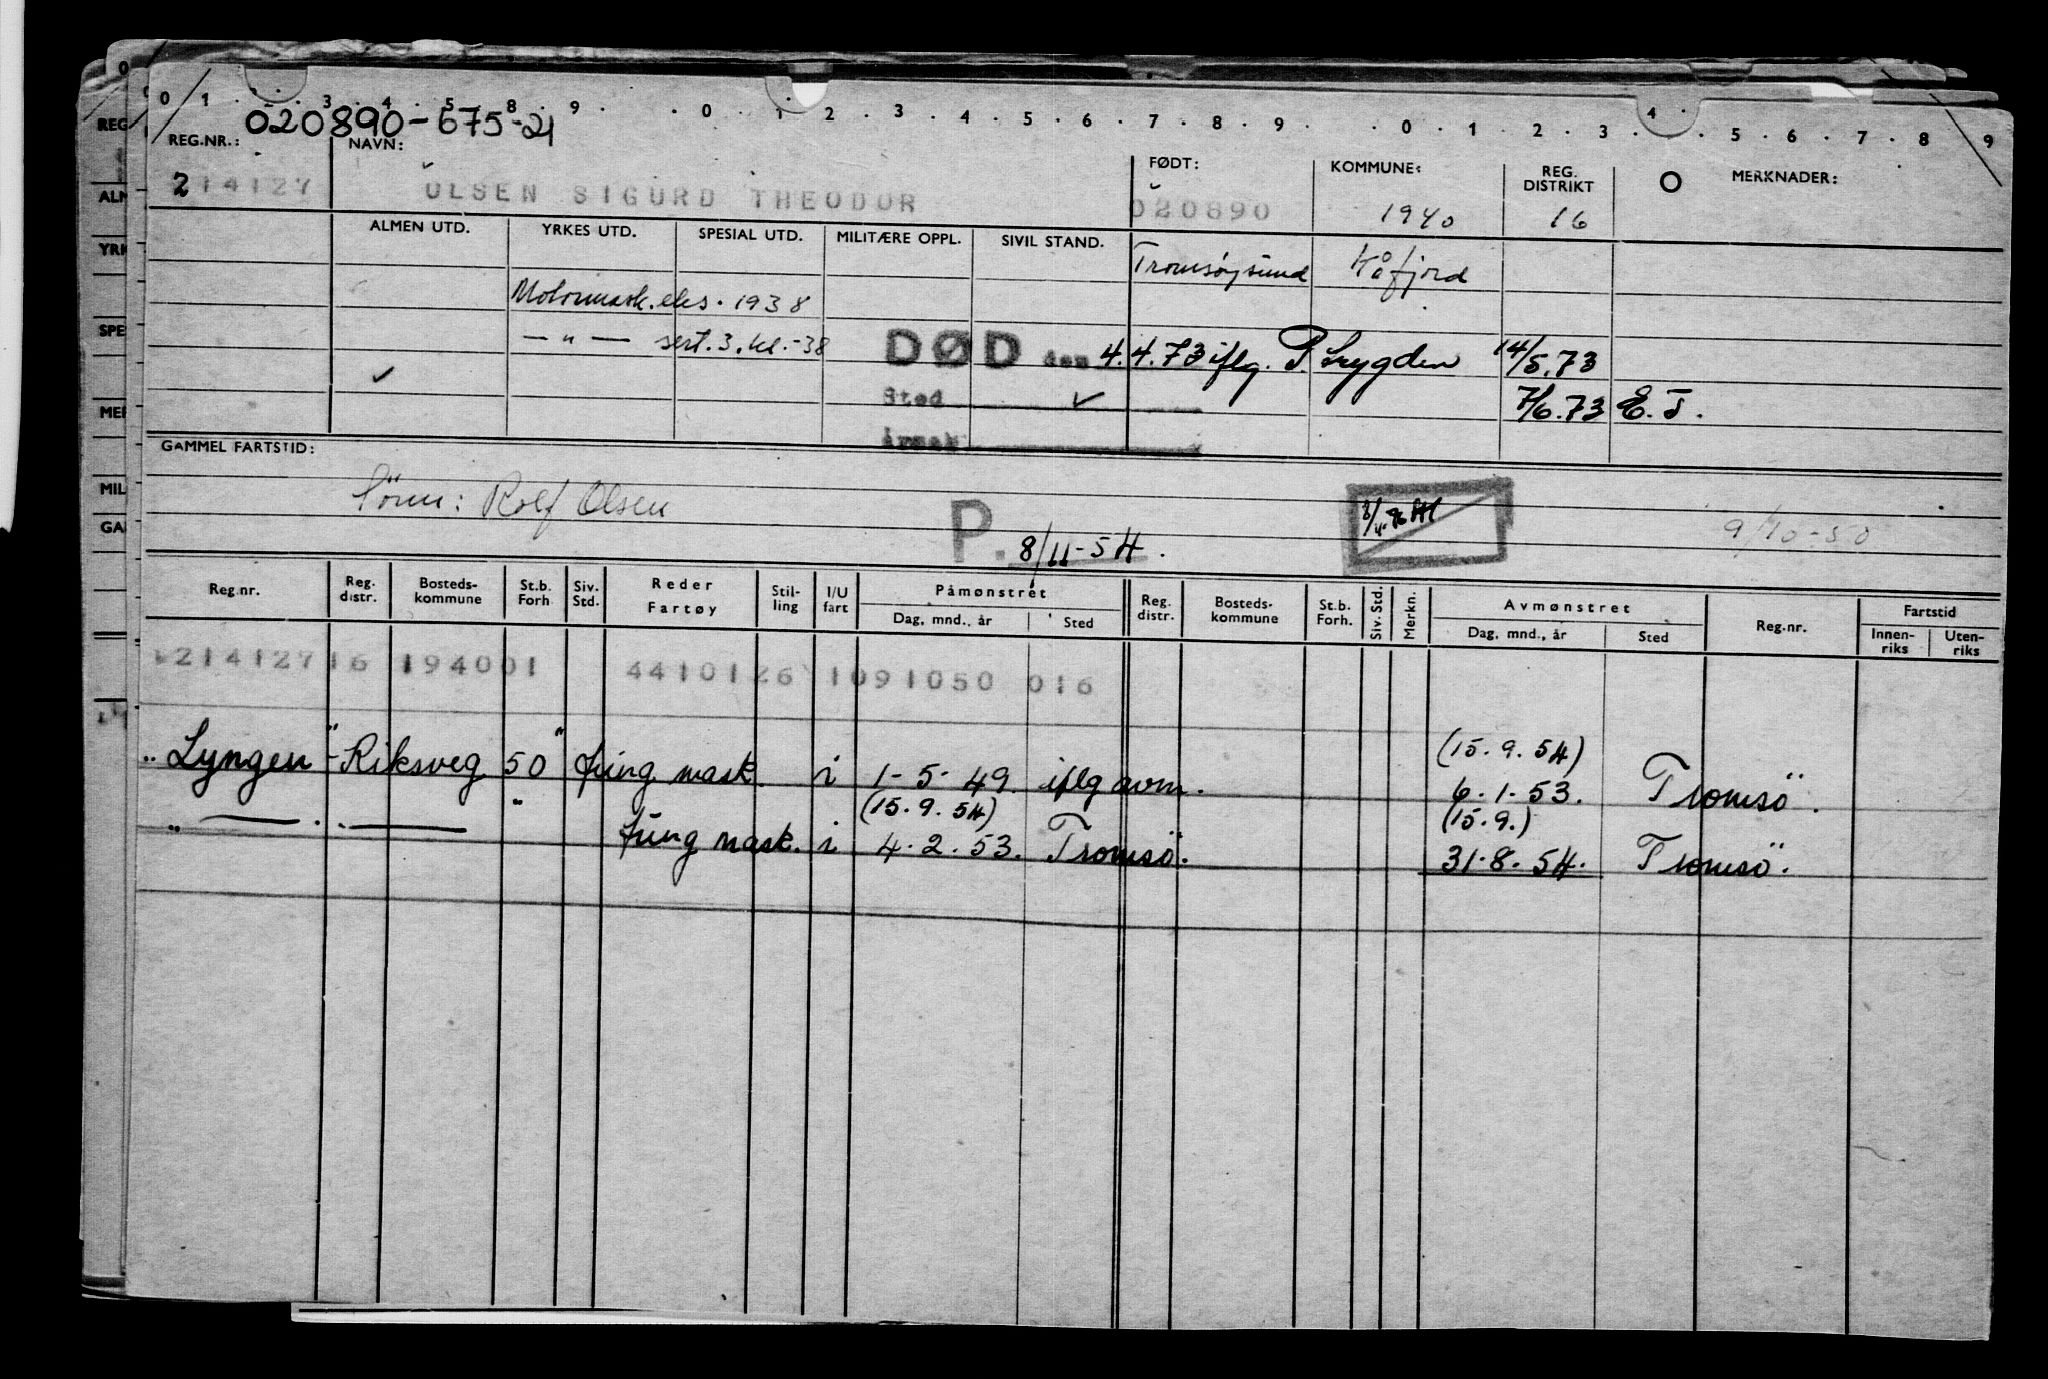 0 1 . . 3 . 4 . 5 . 8 . 9 . . 0 . 1 2 . 3 . 4 . 5 . 6 . 7 . 8 . 9 . . 0 . 1 . 2 . 3 . 4 . 5 . 6 . 7 . 8 9
020890-675-21
REG.NR.: NAVN: FØDT: KOMMUNE: REG. DISTRIKT O MERKNADER:
214127 OLSEN SIGURD THEODOR 020890 1940 16
ALMEN UTD. YRKES UTD. SPESIAL UTD. MILITÆRE OPPL. SIVIL STAND. Tromsøysund Kåfjord
Motormask.eks. 1938
— " — sert. 3. kl. -38 DØD den 4.4.73 iflg. P. 14/5.73
✓ Sted ✓ 7/6.73 E. T.
Årsak
GAMMEL FARTSTID:
Sönn: Rolf Olsen
P. 8/11-54. 9/10-50
Reg.nr. Reg. distr. Bosteds-kommune St.b. Forh Siv. Std. Reder Fartøy Stil-ling I/U fart Påmønstret Dag, mnd., år Sted Reg. distr. Bosteds-kommune St.b. Forh. Siv. Std. Merkn. Avmønstret Dag, mnd., år Sted Reg.nr. Fartstid Innen-riks Uten-riks
214127 16 1940 01 4410126 1091050 016
(15.9.54)
"Lyngen"-Riksveg 50" fung mask. i 1-5-49. iflg avm. 6.1.53. Tromsö.
(15.9.54) (15.9.)
" — . . — " fung mask. i 4.2.53. Tromsö. 31.8.54. Tromsö.